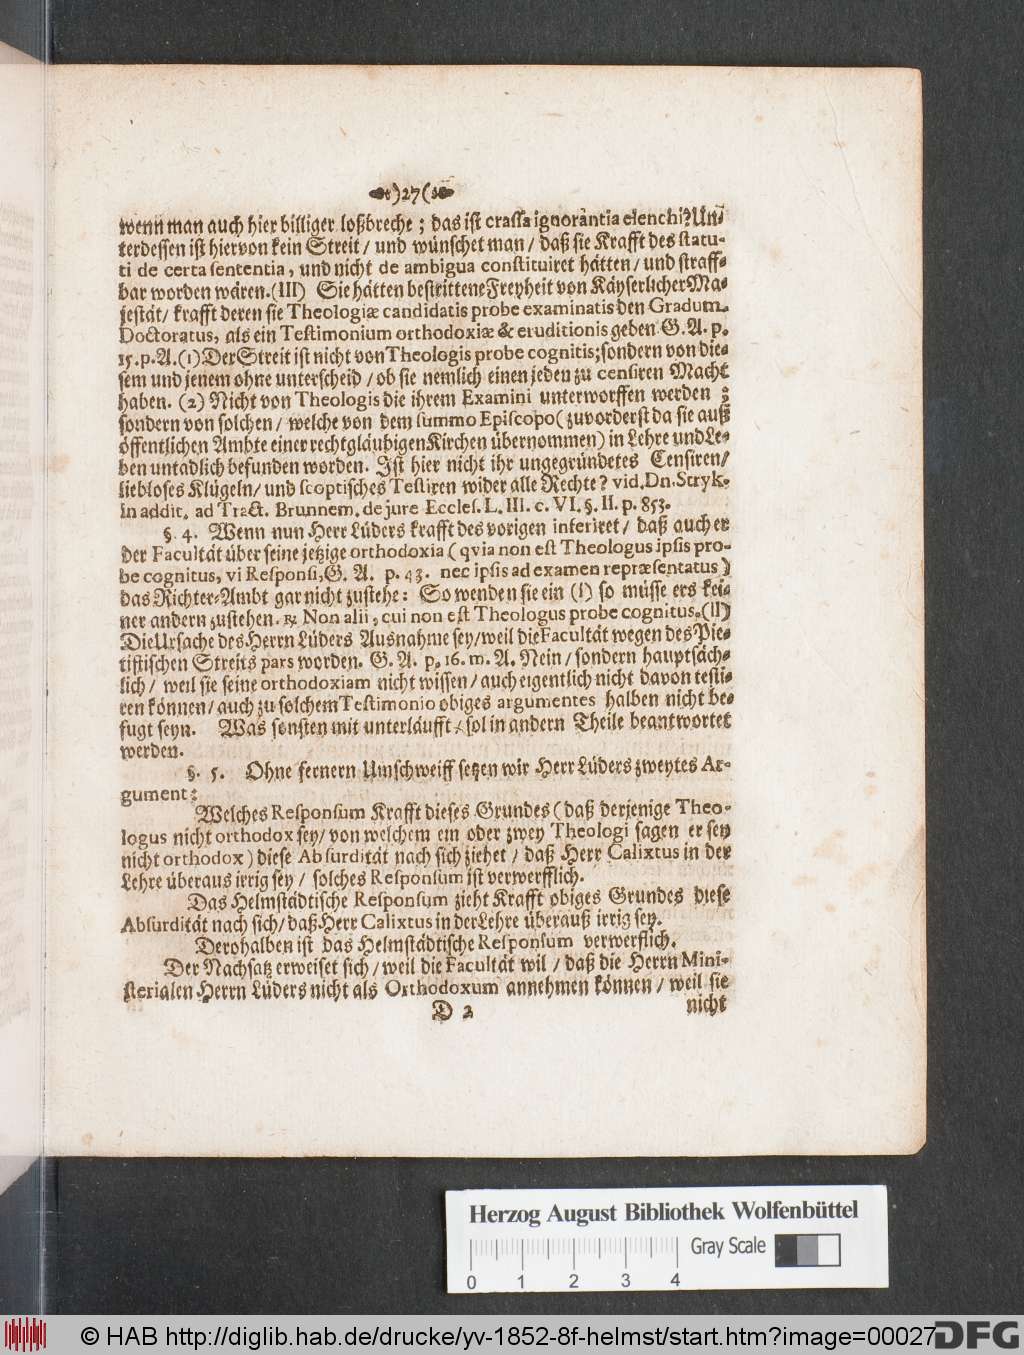 )27(
wenn man auch hier billiger loßbreche ; das ist crassa ignorantia elenchi? Un-
terdessen ist hiervon kein Streit / und wünschet man / daß sie Krafft des statu-
ti de certa sententia, und nicht de ambigua constituiret hätten / und straff-
bar worden wären. (III) Sie hätten bestrittene Freyheit von Käyserlicher Ma-
jestät / krafft deren sie Theologiæ candidatis probe examinatis den Gradum
Doctoratus, als ein Testimonium orthodoxiæ & eruditionis geben G. A. p.
15. p. A. (1) Der Streit ist nicht von Theologis probe cognitis; sondern von die-
sem und jenem ohne unterscheid / ob sie nemlich einen jeden zu censiren Macht
haben. (2) Nicht von Theologis die ihrem Examini unterworffen werden ;
sondern von solchen / welche von dem summo Episcopo ( zuvorderst da sie auß
öffentlichen Ambte einer rechtgläubigen Kirchen übernommen) in Lehre und Le-
ben untadlich befunden worden. Ist hier nicht ihr ungegründetes Censiren /
liebloses Klügeln / und scoptisches Testiren wider alle Rechte? vid. Dn. Stryk.
in addit. ad Tract. Brunnem. de jure Eccles. L. III. c. VI. §. II. p. 853.
§. 4. Wenn nun Herr Lüders krafft des vorigen inferiret / daß auch er
der Facultät über seine jetzige orthodoxia ( qvia non est Theologus ipsis pro-
be cognitus, vi Responsi, G. A. p. 43. nec ipsis ad examen repræsentatus )
das Richter-Ambt gar nicht zustehe: So wenden sie ein (I) so müsse ers kei-
ner andern zustehen. ℞ Non alii, cui non est Theologus probe cognitus. (II)
Die Ursache des Herrn Lüders Ausnahme sey / weil die Facultät wegen des Pie-
tistischen Streits pars worden. G. A. p. 16. m. A. Nein / sondern hauptsäch-
lich / weil sie seine orthodoxiam nicht wissen / auch eigentlich nicht davon testi-
ren können / auch zu solchem Testimonio obiges argumentes halben nicht be-
fugt seyn. Was sonsten mit unterläufft / sol in andern Theile beantwortet
werden.
§. 5. Ohne fernern Umschweiff setzen wir Herr Lüders zweytes Ar-
gument:
Welches Responsum Krafft dieses Grundes ( daß derjenige Theo-
logus nicht orthodox sey / von welchem ein oder zwey Theologi sagen er sey
nicht orthodox ) diese Absurdität nach sich ziehet / daß Herr Calixtus in der
Lehre überaus irrig sey / solches Responsum ist verwerfflich.
Das Helmstädtische Responsum zieht Krafft obiges Grundes diese
Absurdität nach sich / daß Herr Calixtus in der Lehre überauß irrig sey.
Derohalben ist das Helmstädtische Responsum verwerflich.
Der Nachsatz erweiset sich / weil die Facultät wil / daß die Herrn Mini-
sterialen Herrn Lüders nicht als Orthodoxum annehmen können / weil sie
D 2 nicht
Herzog August Bibliothek Wolfenbüttel
Gray Scale
0 1 2 3 4
© HAB http://diglib.hab.de/drucke/yv-1852-8f-helmst/start.htm?image=00027
DFG